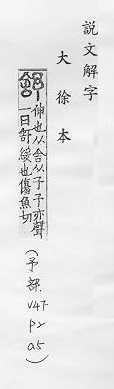 説文解字
大徐本
舒 伸也从舍从予予亦聲
一曰舒緩也傷魚切
(予部 V4下
P2
a5)